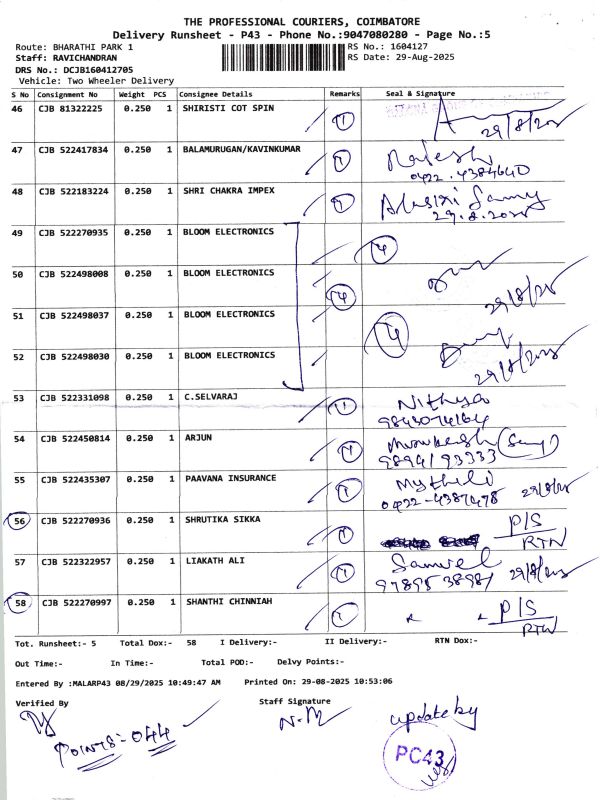 THE PROFESSIONAL COURIERS, COIMBATORE
Delivery Runsheet - P43 - Phone No.:9047080280 - Page No.:5
Route: BHARATHI PARK 1
RS No.: 1604127
Staff: RAVICHANDRAN
RS Date: 29-Aug-2025
DRS No.: DCJB160412705
Vehicle: Two Wheeler Delivery
S No Consignment No Weight PCS Consignee Details Remarks Seal & Signature
46 CJB 81322225 0.250 1 SHIRISTI COT SPIN 1
29/8/2025
47 CJB 522417834 0.250 1 BALAMURUGAN/KAVINKUMAR 1 Rajesh
0422-4384640
48 CJB 522183224 0.250 1 SHRI CHAKRA IMPEX 1
29.8.2025
49 CJB 522270935 0.250 1 BLOOM ELECTRONICS 4
50 CJB 522498008 0.250 1 BLOOM ELECTRONICS 4
29/8/25
51 CJB 522498037 0.250 1 BLOOM ELECTRONICS 4
52 CJB 522498030 0.250 1 BLOOM ELECTRONICS
29/8/2025
53 CJB 522331098 0.250 1 C.SELVARAJ 1 Nithya
9843074164
54 CJB 522450814 0.250 1 ARJUN 1
9894193333
55 CJB 522435307 0.250 1 PAAVANA INSURANCE 1 Mythili
0422-4387478 29/8/25
56 CJB 522270936 0.250 1 SHRUTIKA SIKKA 1 P/S
RTN
57 CJB 522322957 0.250 1 LIAKATH ALI 1 Samuel
29/8/2025
58 CJB 522270997 0.250 1 SHANTHI CHINNIAH 1 P/S
RTN
Tot. Runsheet:- 5 Total Dox:- 58 I Delivery:- II Delivery:- RTN Dox:-
Out Time:- In Time:- Total POD:- Delvy Points:-
Entered By :MALARP43 08/29/2025 10:49:47 AM Printed On: 29-08-2025 10:53:06
Verified By Staff Signature
update by
POINTS:-044
PC43